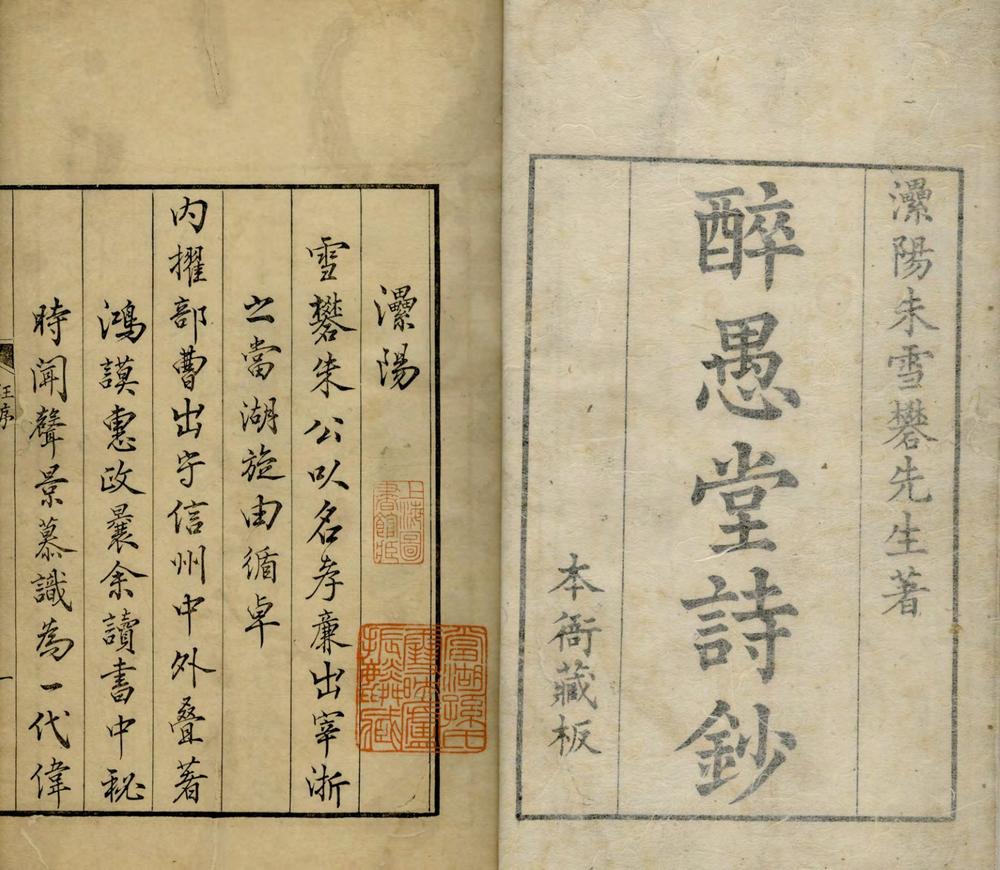 灅陽朱雪礬先生著
醉愚堂詩鈔
本衙藏板
灅陽
雪礬朱公以名孝廉出宰浙
之當湖旋由循卓
內擢部曹出守信州中外疊著
鴻謨惠政曩余讀書中秘
時聞聲景慕識為一代偉
汪序
一
上海圖書館藏